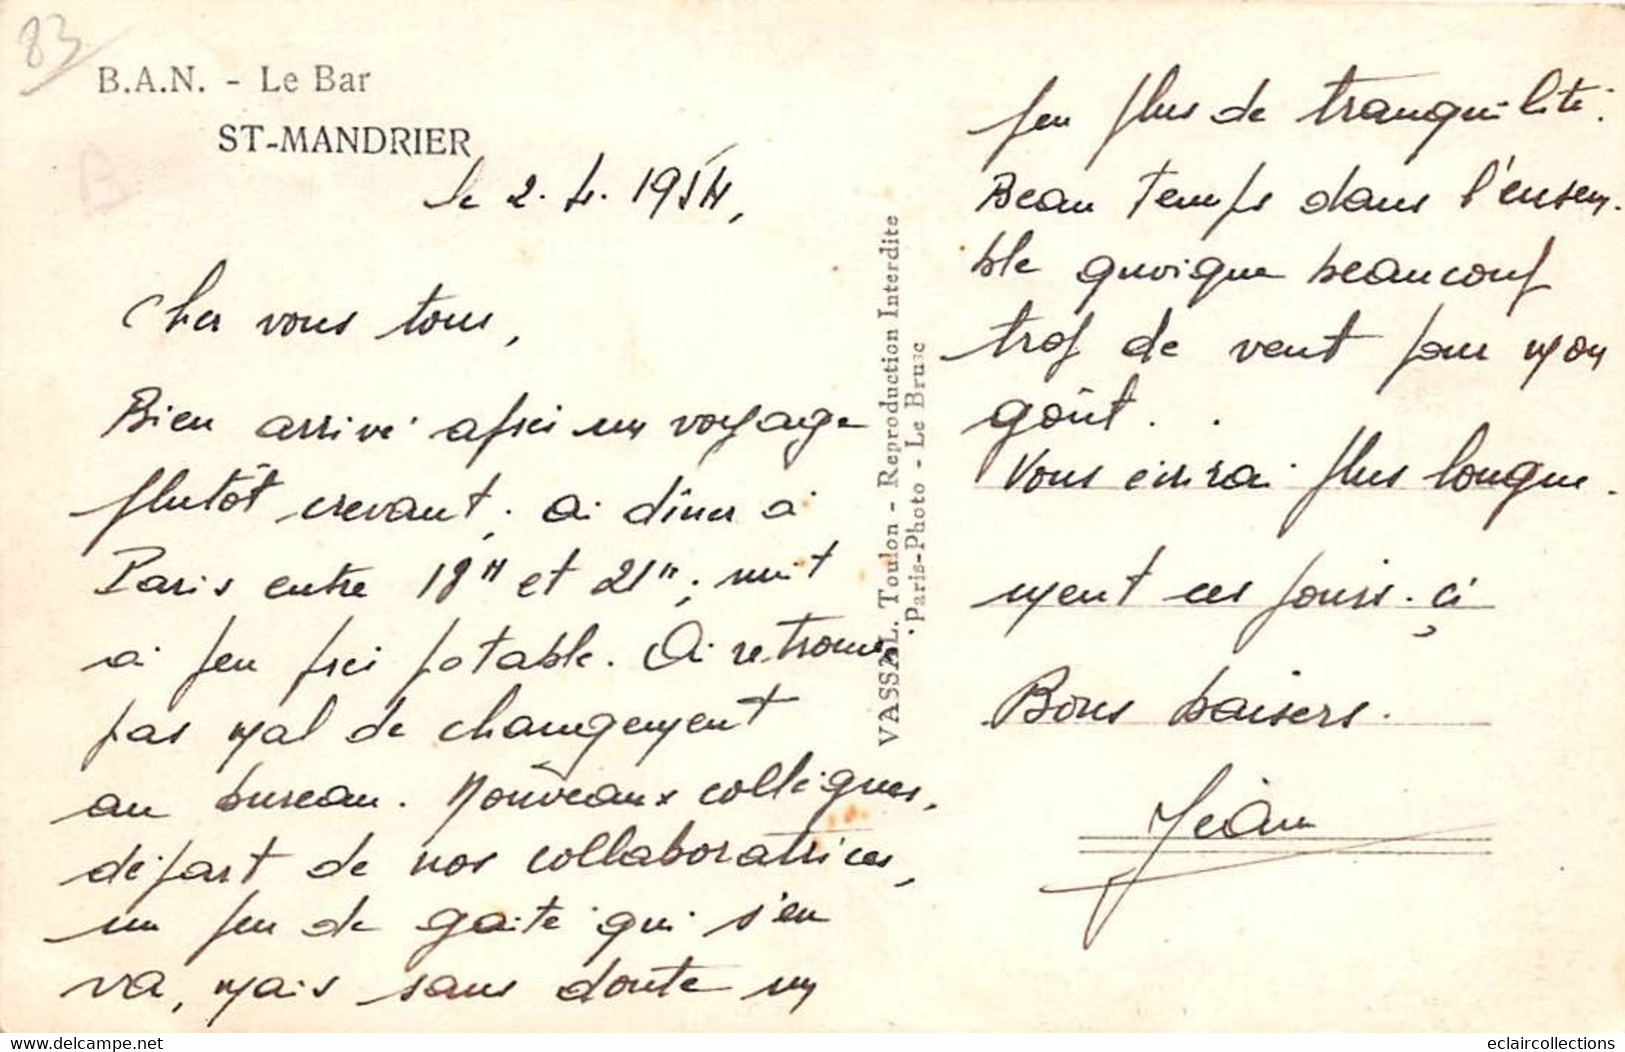 83
B.A.N. - Le Bar
ST-MANDRIER
le 2.4.1954,
Cher vous tous,
Bien arrivé après un voyage
plutôt crevant. ai dîner à
Paris entre 18H et 21H; nuit
à peu près potable. Ai retrouvé
pas mal de changement
au bureau. Nouveaux collègues,
départ de nos collaboratrices,
un peu de gaité qui s'en
va, mais sans doute un
VASSAL. Toulon - Reproduction Interdite
Paris-Photo - Le Brusc
peu plus de tranquilité.
Beau temps dans l'ensem-
ble quoique beaucoup
trop de vent pour mon
goût..
Vous écrirai plus longue-
ment ces jours-çi
Bons baisers.
Jean
eclaircollections
www.delcampe.net